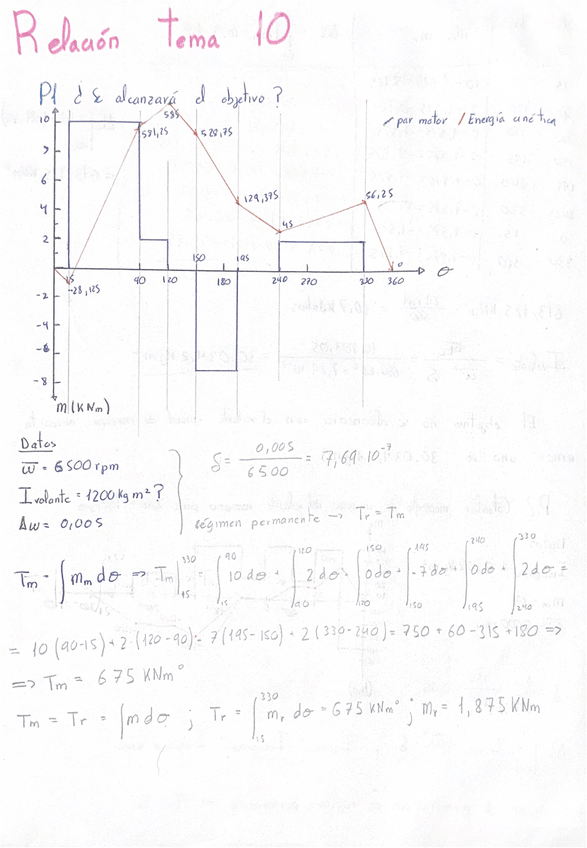 Relación tema 10
P1 ¿Se alcanzará el objetivo?
par motor / Energía cinética
10
8
6
4
2
-2
-4
-6
-8
585
581,25
520,75
129,375
45
56,25
0
15
-28,125
90
120
150
180
195
240
270
330
360
θ
M(KNm)
Datos
ω̅ = 6500 rpm
I volante = 1200 kg m² ?
Δω = 0,005
δ = 0,005 / 6500 = 7,69·10⁻⁷
régimen permanente → Tr = Tm
Tm = ∫ mm dθ ⇒ Tm |₁₅³³⁰ = ∫₁₅⁹⁰ 10 dθ + ∫₉₀¹²⁰ 2 dθ + ∫₁₂₀¹⁵⁰ 0 dθ + ∫₁₅₀¹⁹⁵ -7 dθ + ∫₁₉₅²⁴⁰ 0 dθ + ∫₂₄₀³³⁰ 2 dθ =
= 10 (90-15) + 2 (120-90) - 7 (195-150) + 2 (330-240) = 750 + 60 - 315 + 180 ⇒
⇒ Tm = 675 KNm°
Tm = Tr = ∫ m dθ ; Tr = ∫₁₅³³⁰ mr dθ = 675 KNm° ; Mr = 1,875 KNm